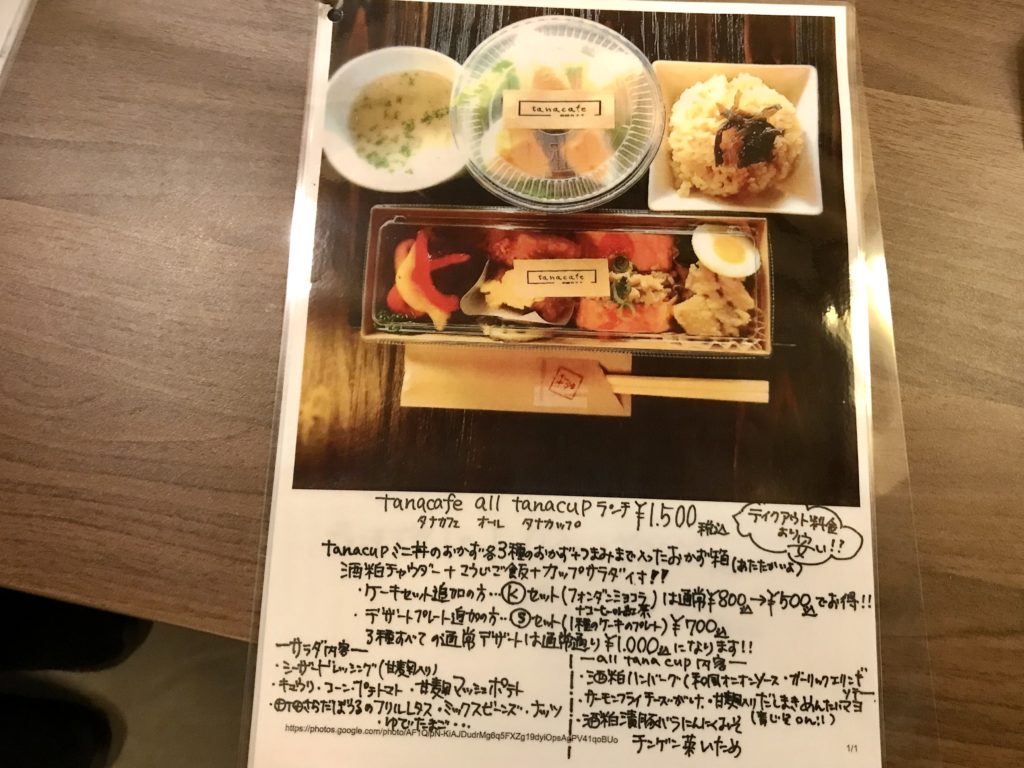 tanacafe
tanacafe
tanacafe all tanacup ランチ ¥1.500 税込
タナカフェ オール タナカップ
テイクアウト料金
より安い!!
tanacupミニ丼のおかず各3種のおかず+つまみまで入ったおかず箱(あたたかいよ)
酒粕チャウダー+こうじご飯+カップサラダです!!
・ケーキセット追加の方…Ⓚセット(フォンダンショコラ)は通常¥800込→¥500込でお得!!
+コーヒーor紅茶
・デザートプレート追加の方…Ⓢセット(1種のケーキのプレート)¥700込
3種すべての通常デザートは通常通り¥1.000込になります!!
ーサラダ内容ー
・シーザードレッシング(甘麹入り)
・キュウリ・コーン・プチトマト・甘麹マッシュポテト
さらだばうるのフリルレタス・ミックスビーンズ・ナッツ
・ゆでたまご…
https://photos.google.com/photo/
ーall tana cup 内容ー
・酒粕ハンバーグ(和風オニオンソース・ガーリックエリンギ
ソテー
・サーモンフライチーズがけ、甘麹入りだしまきめんたいマヨ
(青じそon!!)
・酒粕漬豚バラにんにくみそ
チンゲン菜いため
1/1